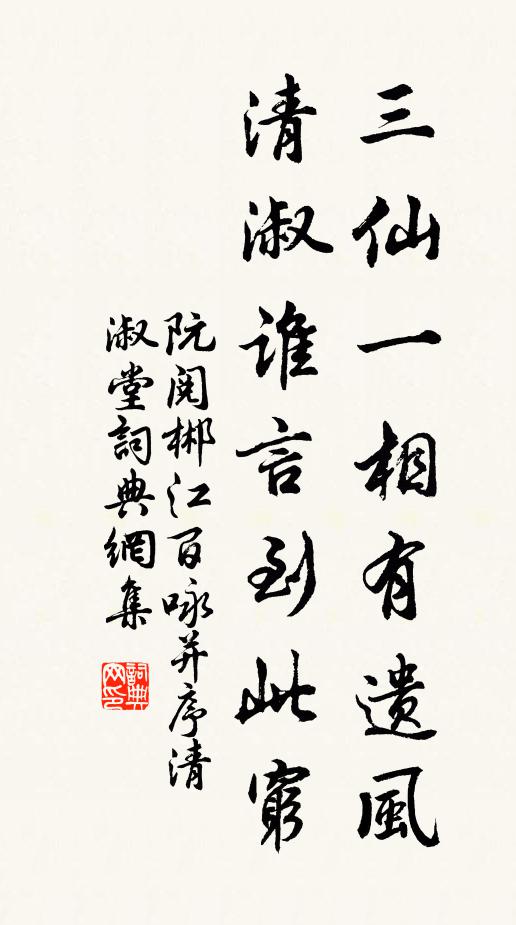 三仙一相有遺風
清淑誰言到此窮
阮閱郴江百咏并序清
淑堂詞典網集
詞典网印